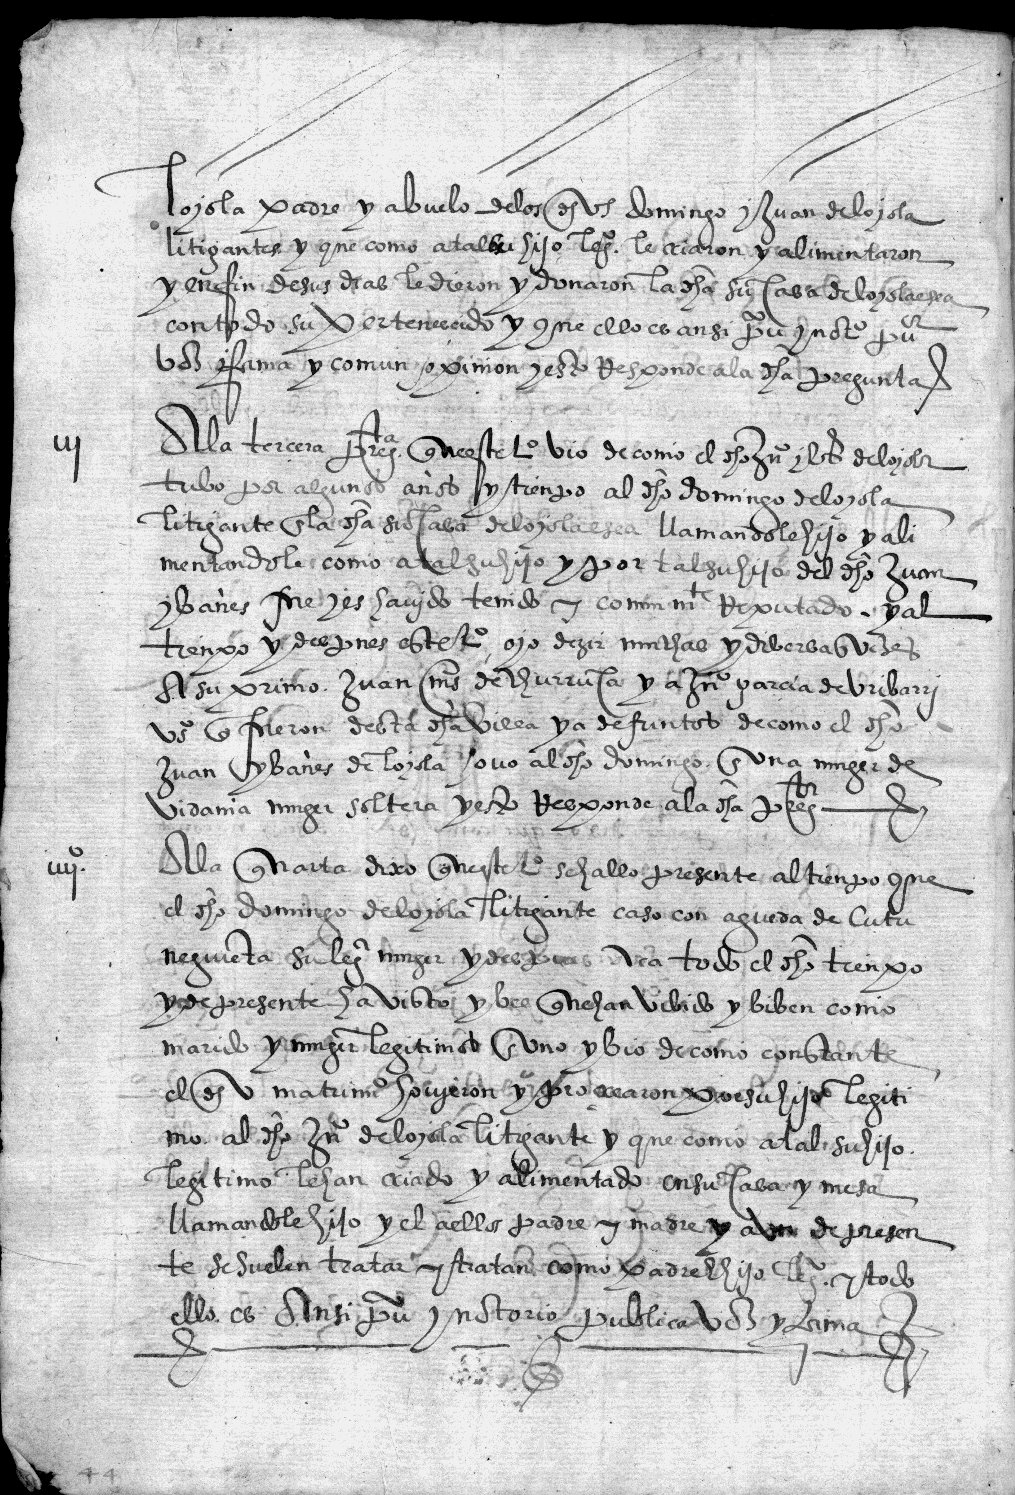 loyola padre y abuelo delos dhos domingo y Juan deloyola
litigantes y que como atal su hijo legº. le criaron y alimentaron
y enefin desus dias le dieron y donaron la dha su casa deloyola
contodo su pertenescido y que ello es ansi pu y notº pu
voz y fama y comun opinion y esto Responde ala dha pregunta
iij Ala tercera pregta. queste tº vio decomo el dho Juº deloyola
tubo por algunos años y tienpo al dho domingo deloyola
litigante en la dha su casa deloyola llamandole hijo y ali
mentandole como atal su hijo y por tal su hijo del dho Juan
ybañes fue y es havydo tenido y comunmte Reputado. y al
tienpo y despues este tº oyo dezir muchas y diversas vezes
A su primo. Juan mrs de churruca y a Juº garcia de Uribarri
vsº q fueron desta dha villa ya defuntos decomo el dho
Juan ybañes de loyola ovo al dho domingo. en una muger de
vidania muger soltera y esto Responde ala dha pregta
iiijº. Ala quarta dixo queste tº sehallo presente al tienpo que
el dho domingo deloyola litigante caso con agueda de Cutu
neguieta su legª muger y despues aca todo el dho tienpo
y de presente ha visto y vee quehan vibido y biben como
marido y muger legitimos en uno y bio decomo constante
el dho matrimº hovyeron y procrearon por su hijo legiti
mo. al dho Juº deloyola litigante y que como atal su hijo.
legitimo lehan criado y alimentado en su casa y mesa
llamandole hijo y el aellos padre y madre y aun de presen
te se suelen tratar y tratan como padre hijo legº. y todo
ello. es Ansi pu y notorio publica voz y fama
44